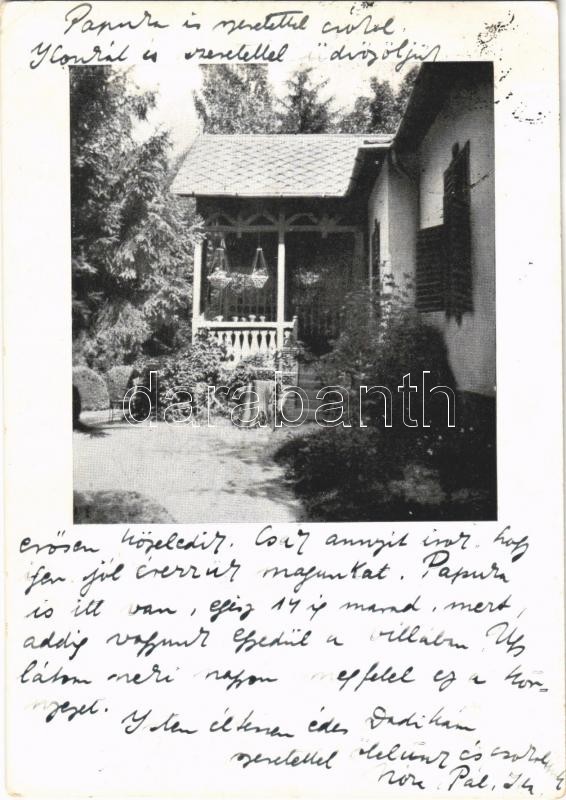 Papuka is szeretettel csókol.
Konrát is szeretettel üdvözöljük
darabanth
erősen közeledik. Csak annyit írok, hogy
igen jól érezzük magunkat. Papuka
is itt van, egész 14 ig marad, mert,
addig vagyunk egyedül a villában. Úgy
látom neki nagyon megfelel ez a kör-
nyezet.
Isten éltessen édes Dadikám
szeretettel ölelünk és csókol
Pál,